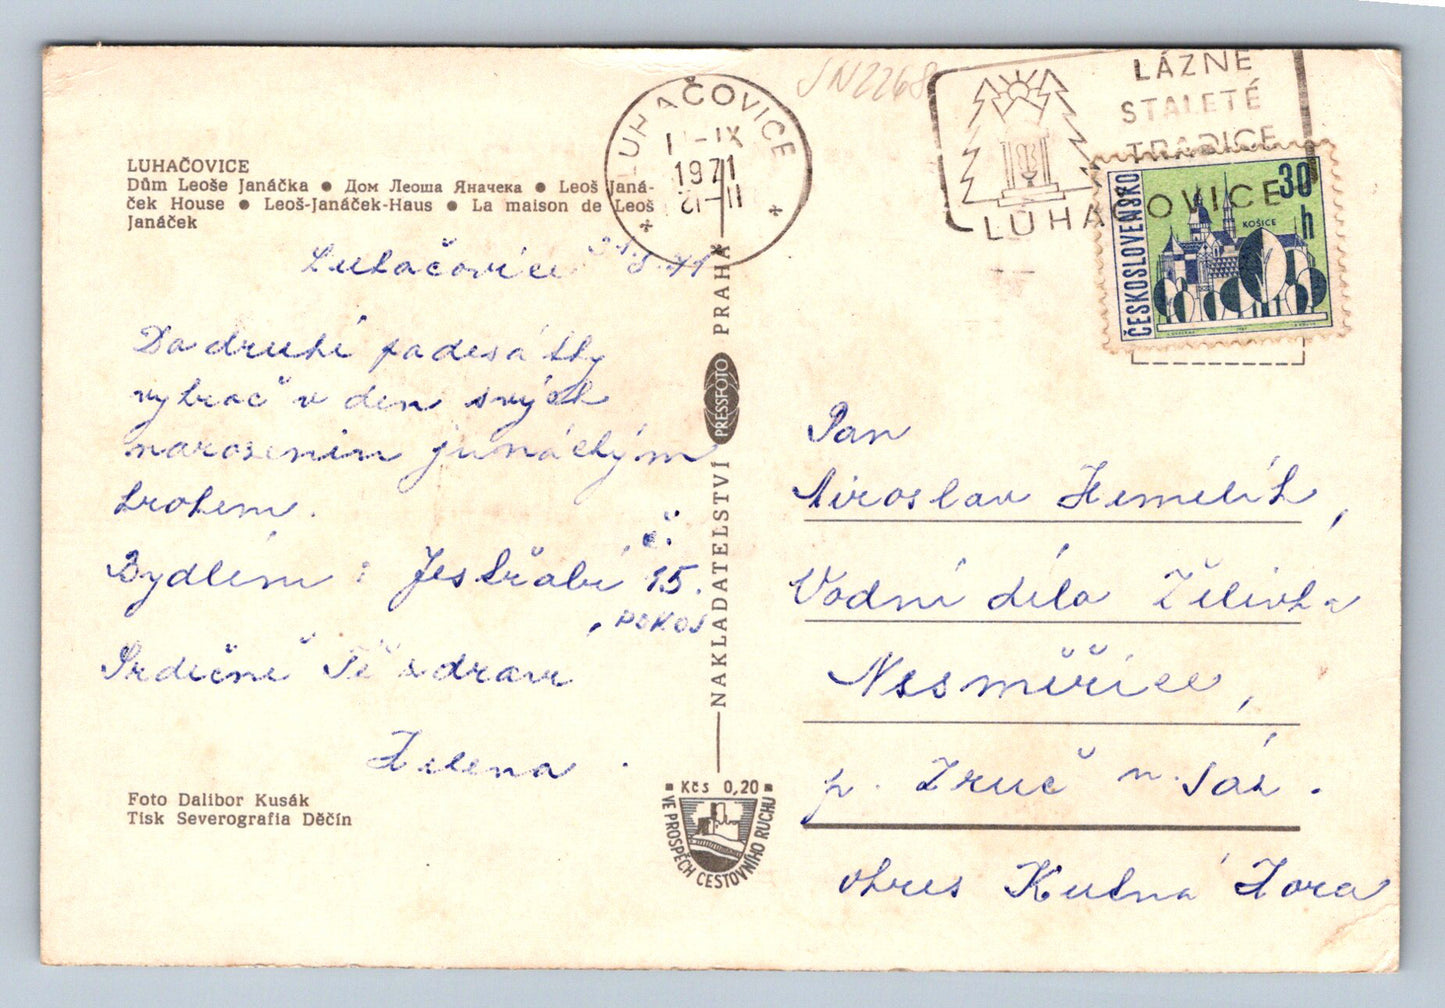 JN2268
LUHAČOVICE
1971
LÁZNE
STALETÉ
TRADICE
LUHAČOVICE
ČESKOSLOVENSKO
30
h
KOŠICE
LUHAČOVICE
Dům Leoše Janáčka ● Дом Леоша Яначека ● Leoš Janá-
ček House ● Leoš-Janáček-Haus ● La maison de Leoš
Janáček
Luhačovice 31.8.71
Do druhé padesátky
vykroč v den svých
narozenin junáckým
krokem.
Bydlím: Jestřabí č. 15.
POKOJ
Srdečně Tě zdraví
Helena.
Foto Dalibor Kusák
Tisk Severografia Děčín
NAKLADATELSTVÍ PRESSFOTO PRAHA
Kčs 0,20
VE PROSPĚCH CESTOVNÍHO RUCHU
Pan
Miroslav Hemelík,
Vodní díla Želivka
Nesměřice,
p. Zruč n. Sáz.
okres Kutná Hora